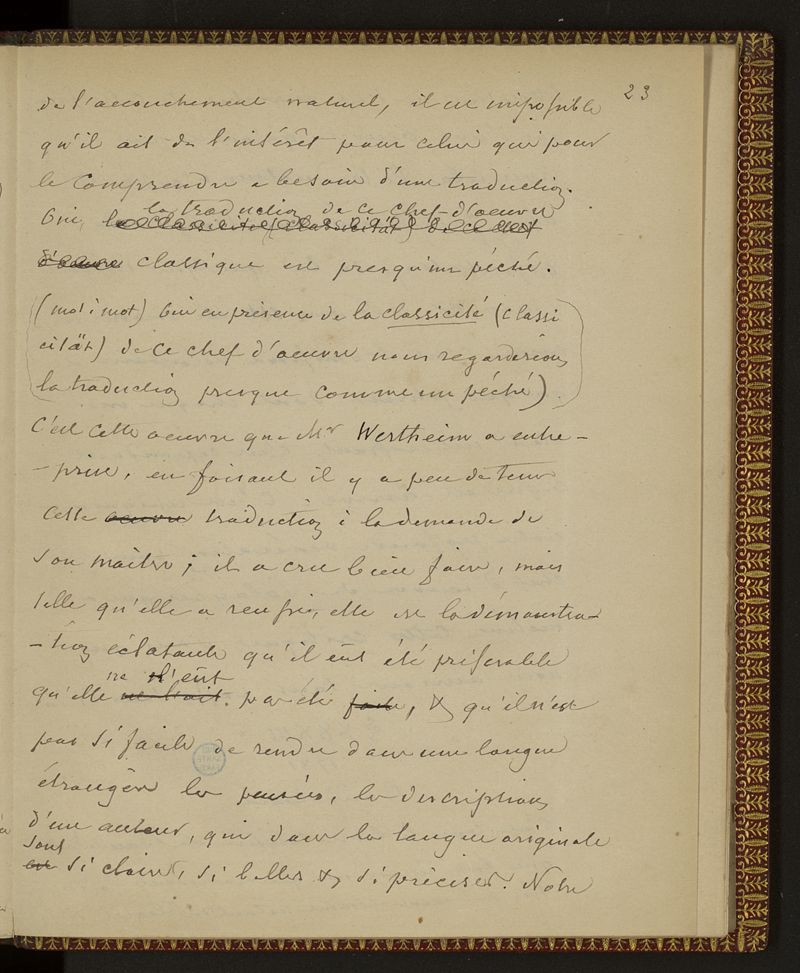 23
de l'accouchement naturel, il est impossible
qu'il ait de l'intérêt pour celui qui pour
le comprendre a besoin d'une traduction.
la traduction de ce chef d'oeuvre
Oui, la classicité (classicität) de ce chef
d'oeuvre classique est presqu'un péché.
(mot à mot) Oui en présence de la classicité (Classi
cität) de ce chef d'oeuvre nous regarderions
la traduction presque comme un péché)
C'est cette oeuvre que Mr Wertheim a entre-
-prise, en faisant il y a peu de tems
cette oeuvre traduction à la demande de
son maître; il a cru bien faire, mais
telle qu'elle a, elle est la démonstra-
-tion éclatante qu'il eût été préférable
ne l'eût
qu'elle ne l'ait pas été faite, & qu'il n'est
pas si facile de rendre dans une langue
étrangère les pensées, les descriptions
d'un auteur, qui dans la langue originale
sont
est si claires, si belles & si précises. Notre